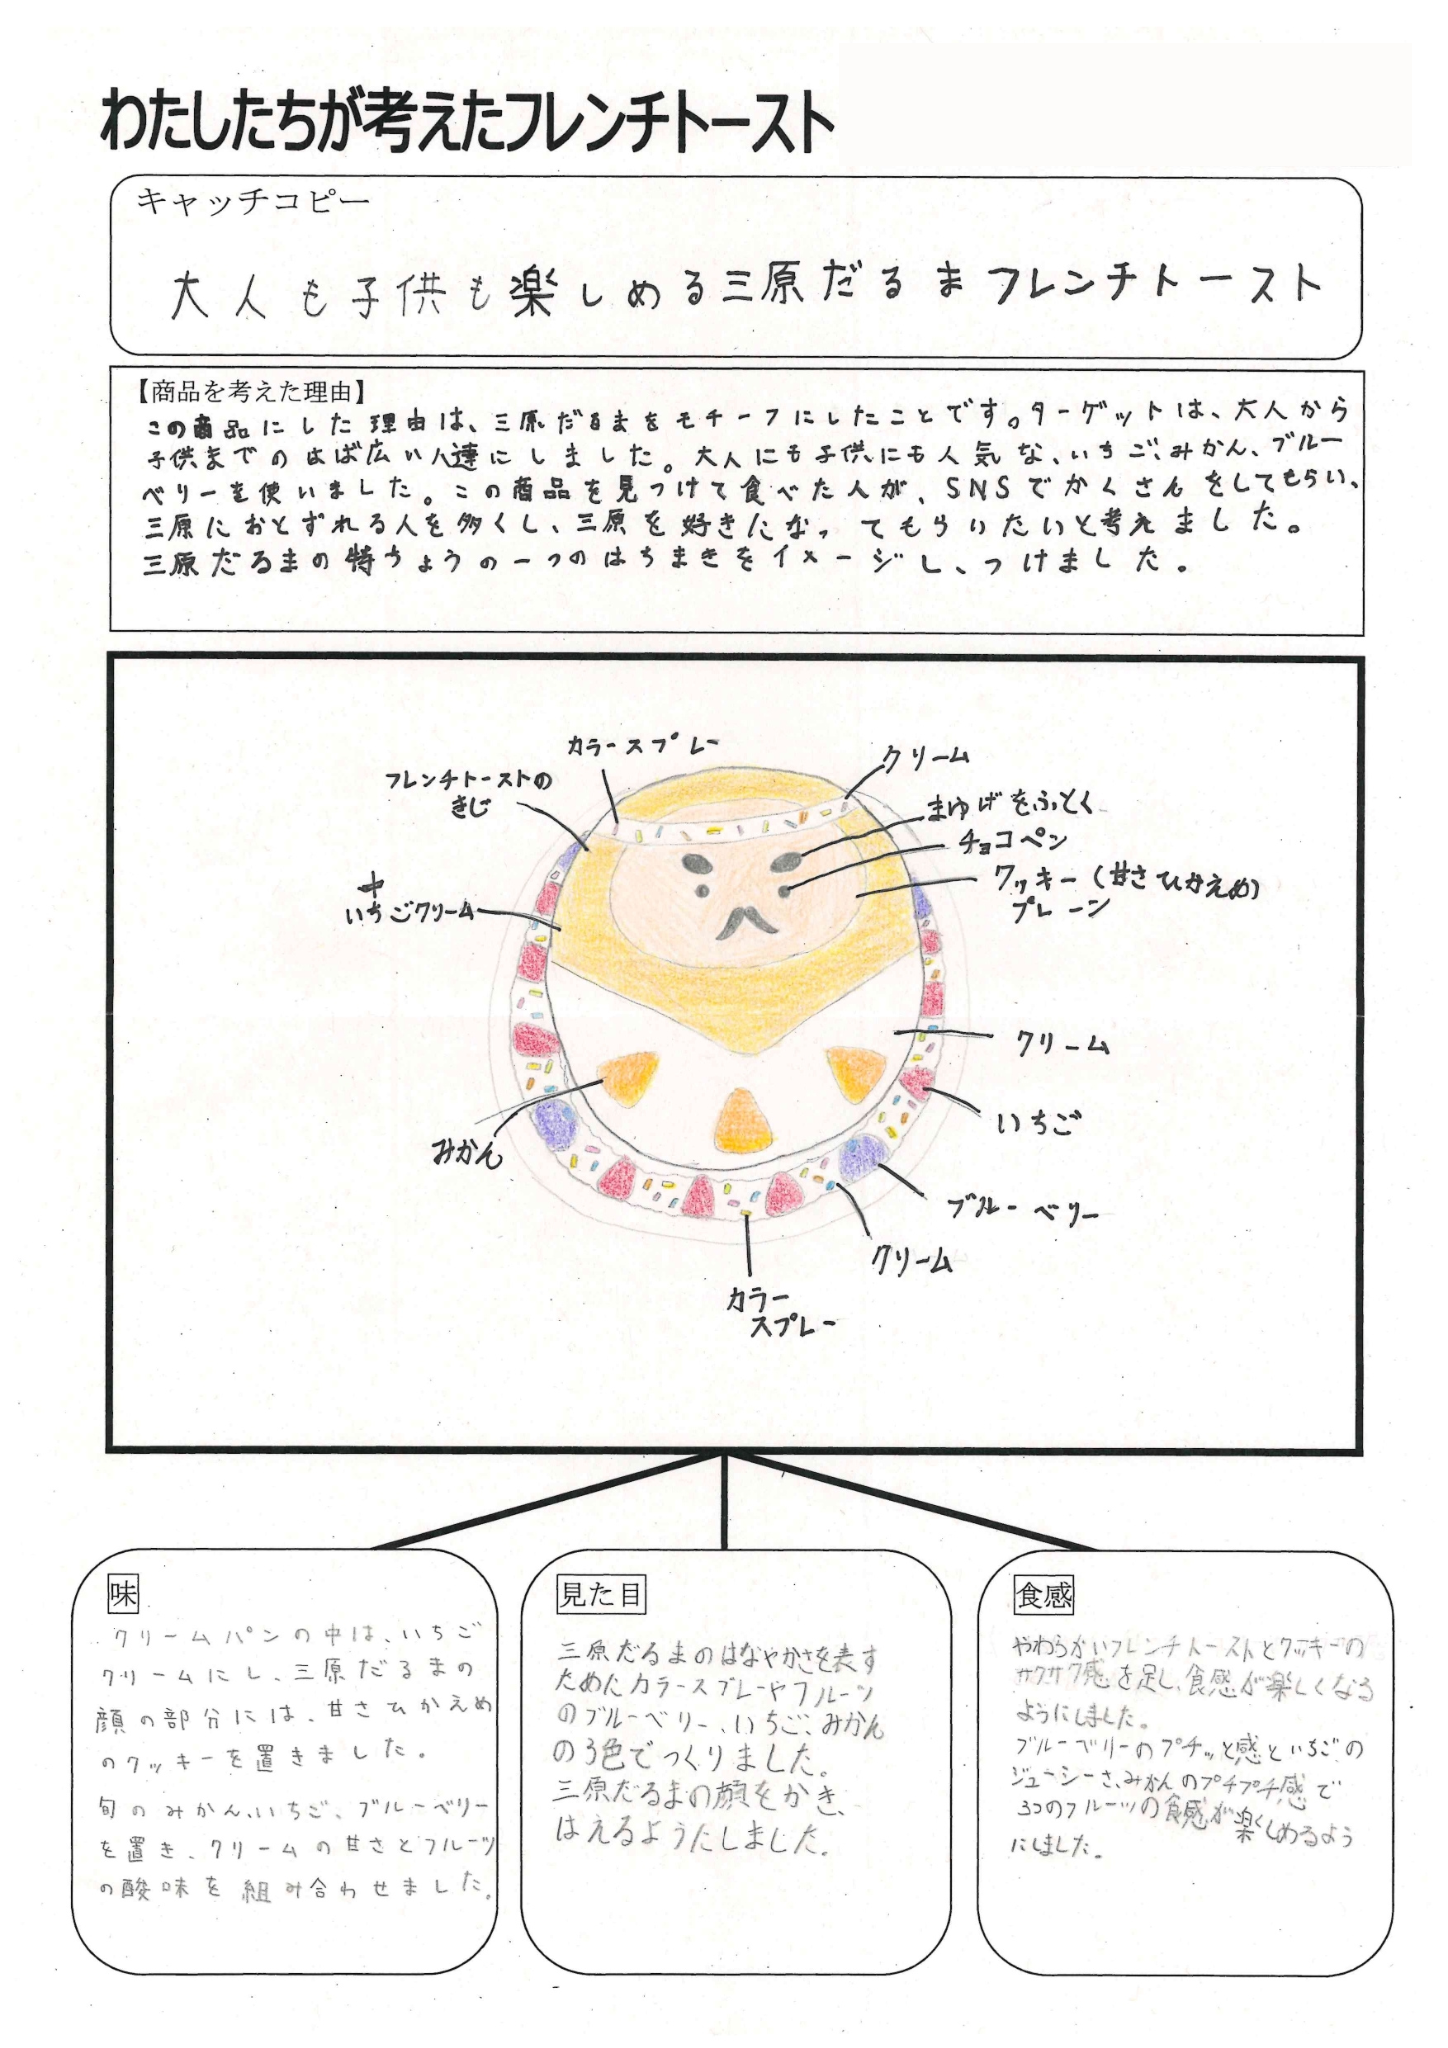 わたしたちが考えたフレンチトースト
キャッチコピー
大人も子供も楽しめる三原だるまフレンチトースト
【商品を考えた理由】
この商品にした理由は、三原だるまをモチーフにしたことです。ターゲットは、大人から
子供までのはば広い人達にしました。大人にも子供にも人気な、いちご、みかん、ブルー
ベリーを使いました。この商品を見つけて食べた人が、SNSでかくさんをしてもらい、
三原におとずれる人を多くし、三原を好きになってもらいたいと考えました。
三原だるまの特ちょうの一つのはちまきをイメージし、つけました。
カラースプレー
クリーム
フレンチトーストの
きじ
まゆげをふとく
チョコペン
クッキー(甘さひかえめ)
プレーン
中
いちごクリーム
クリーム
いちご
みかん
ブルーベリー
クリーム
カラー
スプレー
味
クリームパンの中は、いちご
クリームにし、三原だるまの
顔の部分には、甘さひかえめ
のクッキーを置きました。
旬のみかん、いちご、ブルーベリー
を置き、クリームの甘さとフルーツ
の酸味を組み合わせました。
見た目
三原だるまのはなやかさを表す
ためにカラースプレーやフルーツ
のブルーベリー、いちご、みかん
の3色でつくりました。
三原だるまの顔をかき、
はえるようにしました。
食感
やわらかいフレンチトーストとクッキーの
サクサク感を足し、食感が楽しくなる
ようにしました。
ブルーベリーのプチッと感といちごの
ジューシーさ、みかんのプチプチ感で
3つのフルーツの食感が楽しめるよう
にしました。